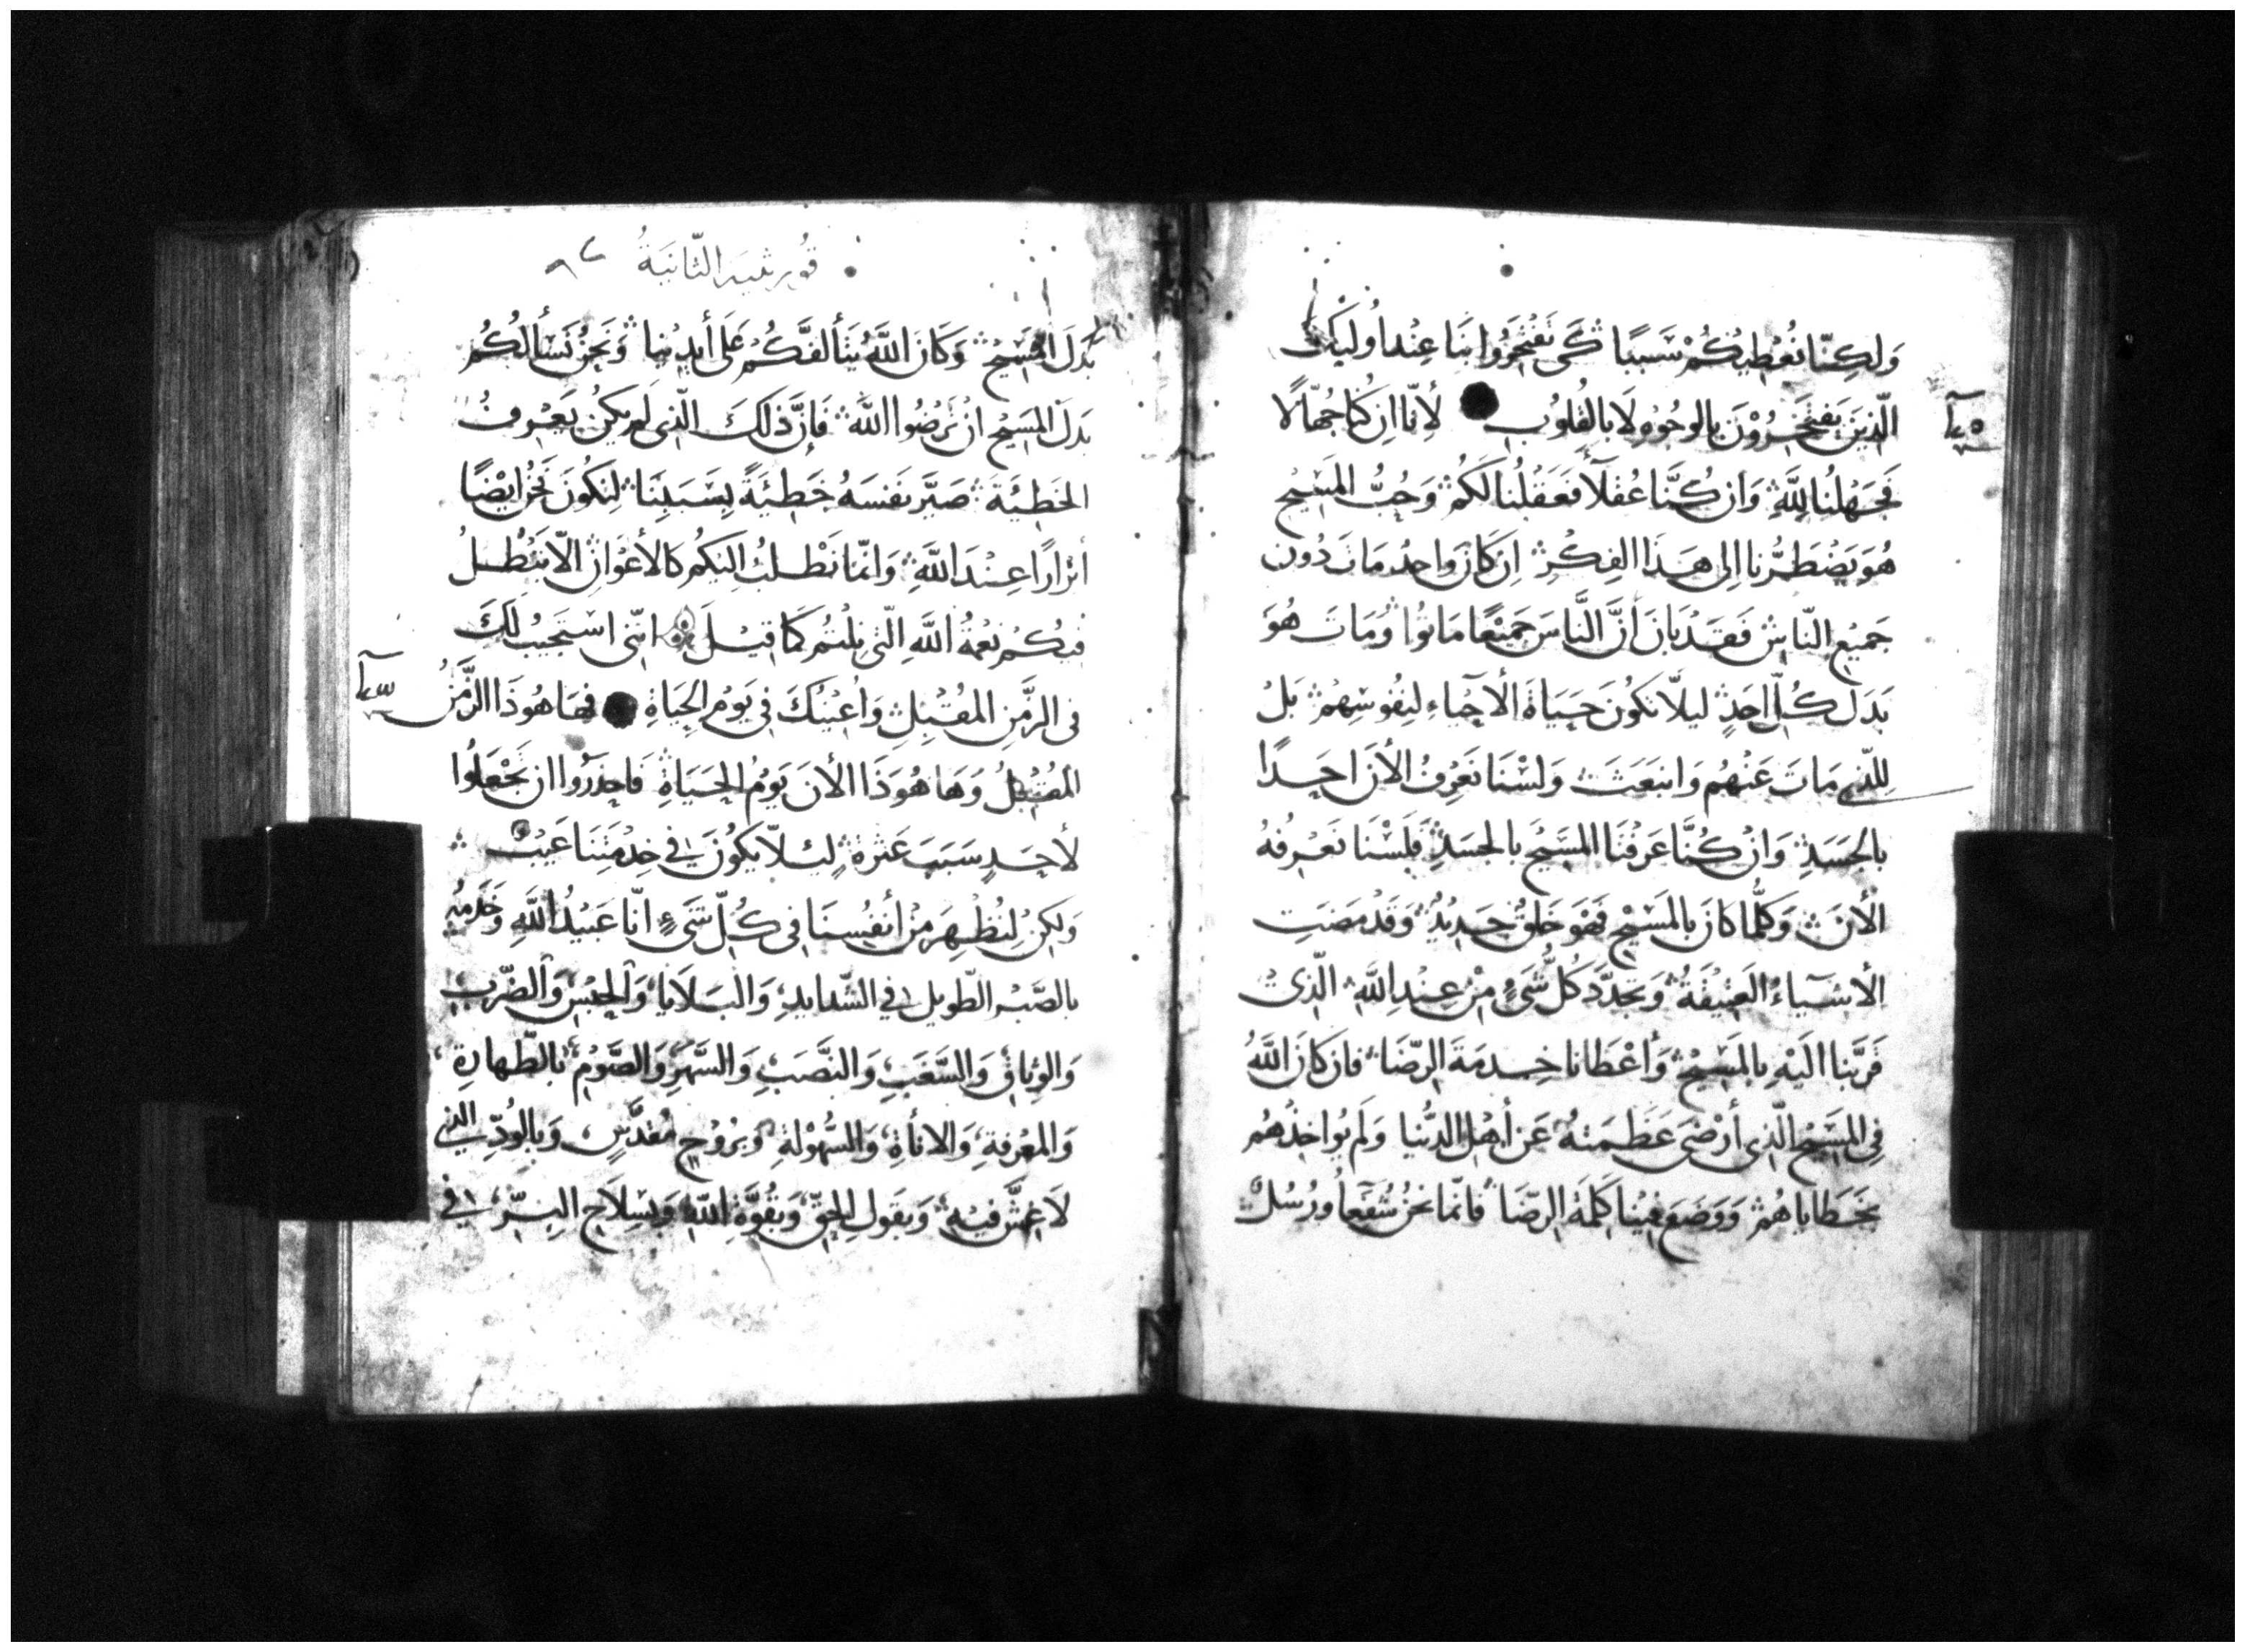 وَلكِنّا نُعْطِيكُمْ سَبَبًا كَى تَفْتَخِرُوا بِنَا عِنْدَ اُولَيْكَ
الّذِينَ يَفتَخِرُوْنَ بِالوجُوْهِ لَا بالقُلوُبِ لِأنّا اِن كُنا جُهّالًا
فَجَهْلنُا للهِ وَان كُنَّا عُقلَآءً فَعَقْلُنا لَكُم وَحُبُّ المَسِيْحِ
هُوَ يَضْطَرُّنا اِلى هَذَا الفِكْرِ اِن كَانَ وَاحِدُ مَاتَ دُونَ
جَميْع النّاسِ فَقَدْ بَانَ أنَّ النَّاسَ جَمِيْعًا مَاتوُا وَمَاتَ هُوَ
بَدَلَ كُلِّ اَحَدٍ ليلَّا نَكُونَ حَيَاةَ الأحيَاءِ لنِفُوسِهِمْ بَلْ
لِلّذِي مَاتَ عَنْهُم وَانبَعَثَ وَلَسْنَا نَعْرِفُ الأنَ اَحَدًا
بالجَسَدِ وَانْ كُنَّا عَرَفْنَا المسَيْحَ بالجسَدِ فَلَسْنَا نَعْرِفهُ
الأنَ وَكلُّما كانَ بالمَسَيْحِ فَهْوَ خَلقٌ جَدِيْدٌ وَقَدْ مَضَتِ
الأشيآءُ العَتِيْقَةُ وَتجدَّدَ كُلُّ شَىءٍ مِنْ عِنْدِ اللهِ الّذِىْ
قَرَّبَنا اليَْهِ بالمَسِيْحِ وَأعْطَانا خِدمَةَ الرِّضَا فان كانَ اللهُ
فِى المسَيْحِ الّذِى أرْضَى عَظَمَتهُ عَن أهْلِ الدُّنيا وَلَم يُواخِذْهُمْ
بخَطَاياهُمْ وَوَضَعَ فيْنا كَلمَةَ الرِّضَا فانّما نحنُ شُفَعآءُ ورُسُلْ
قُورِنثيه الثّانيَةُ
بَدَلَ المَسِيْحِ وَكَانَ اللهُ يَتَألفَكُم عَلَى أيديْنا وَنَحنُ نَسْألُكُم
بَدَلَ المَسِيْحِ انْ تَرْضُوا اللهَ فَاِنَّ ذَلكَ الّذِى لَم يَكنُ يَعْرِفُ
الخَطِيْئَةَ صَيَّر نَفسَهُ خَطِيْئَةً بِسَبَبِنَا لِنَكُونَ نَحْنُ ايْضًا
أبْرارًا عِنْدَ اللهِ وَانمّا نَطْلبُ اليْكُم كالأعْوَانِ الّا تبَْطُلُ
فيْكُمْ نِعْمَةُ اللهِ الّتى نلِتُم كَمَا قيْلَ اننّى اسْتَجَبْتُ لكَ
فى الزَّمَنِ المُقْبِلِ وَاَعَنْتُكَ فى يَوْمِ الحَياةِ فهَا هُوَذَا الزَّمَنُ
المُقْبِلُ وَهَا هُوَذَا الأنَ يَوْمُ الحَيَاةِ فَاحذَرُوا ان تَجْعَلُوا
لأحَدٍ سَبَبَ عَثرَةٍ ليئلّا يَكُونَ في خِدْمَتِنَا عَيْبٌ
وَلكِنْ لِنُظْهِرَ مِنْ أنفُسِنَا فى كُلّ شَىءٍ انّا عَبيْدُ اللهِ وَخَدَمُه
بالصَّبْرِ الطّويلِ في الشّدايدِ وَالبَلَايا وَالحَبْسِ وَالضّربِ
وَالوِثاقِ وَالسَّغَبِ وَالنَّصَبِ وَالسَّهَرِ وَالصَّوْمِ بالطّهارةِ
وَالمعْرِفةِ وَالاناةِ وَالسُّهُوْلَةِ وَبرُوْحِ مُقدَّسٍ وَبالوُدِّ الذي
لَا غِشَّ فيْهِ وَبقَولِ الحِقّ وَبقُوَّةِ اللهِ وَبسِلاحِ البِرّ في